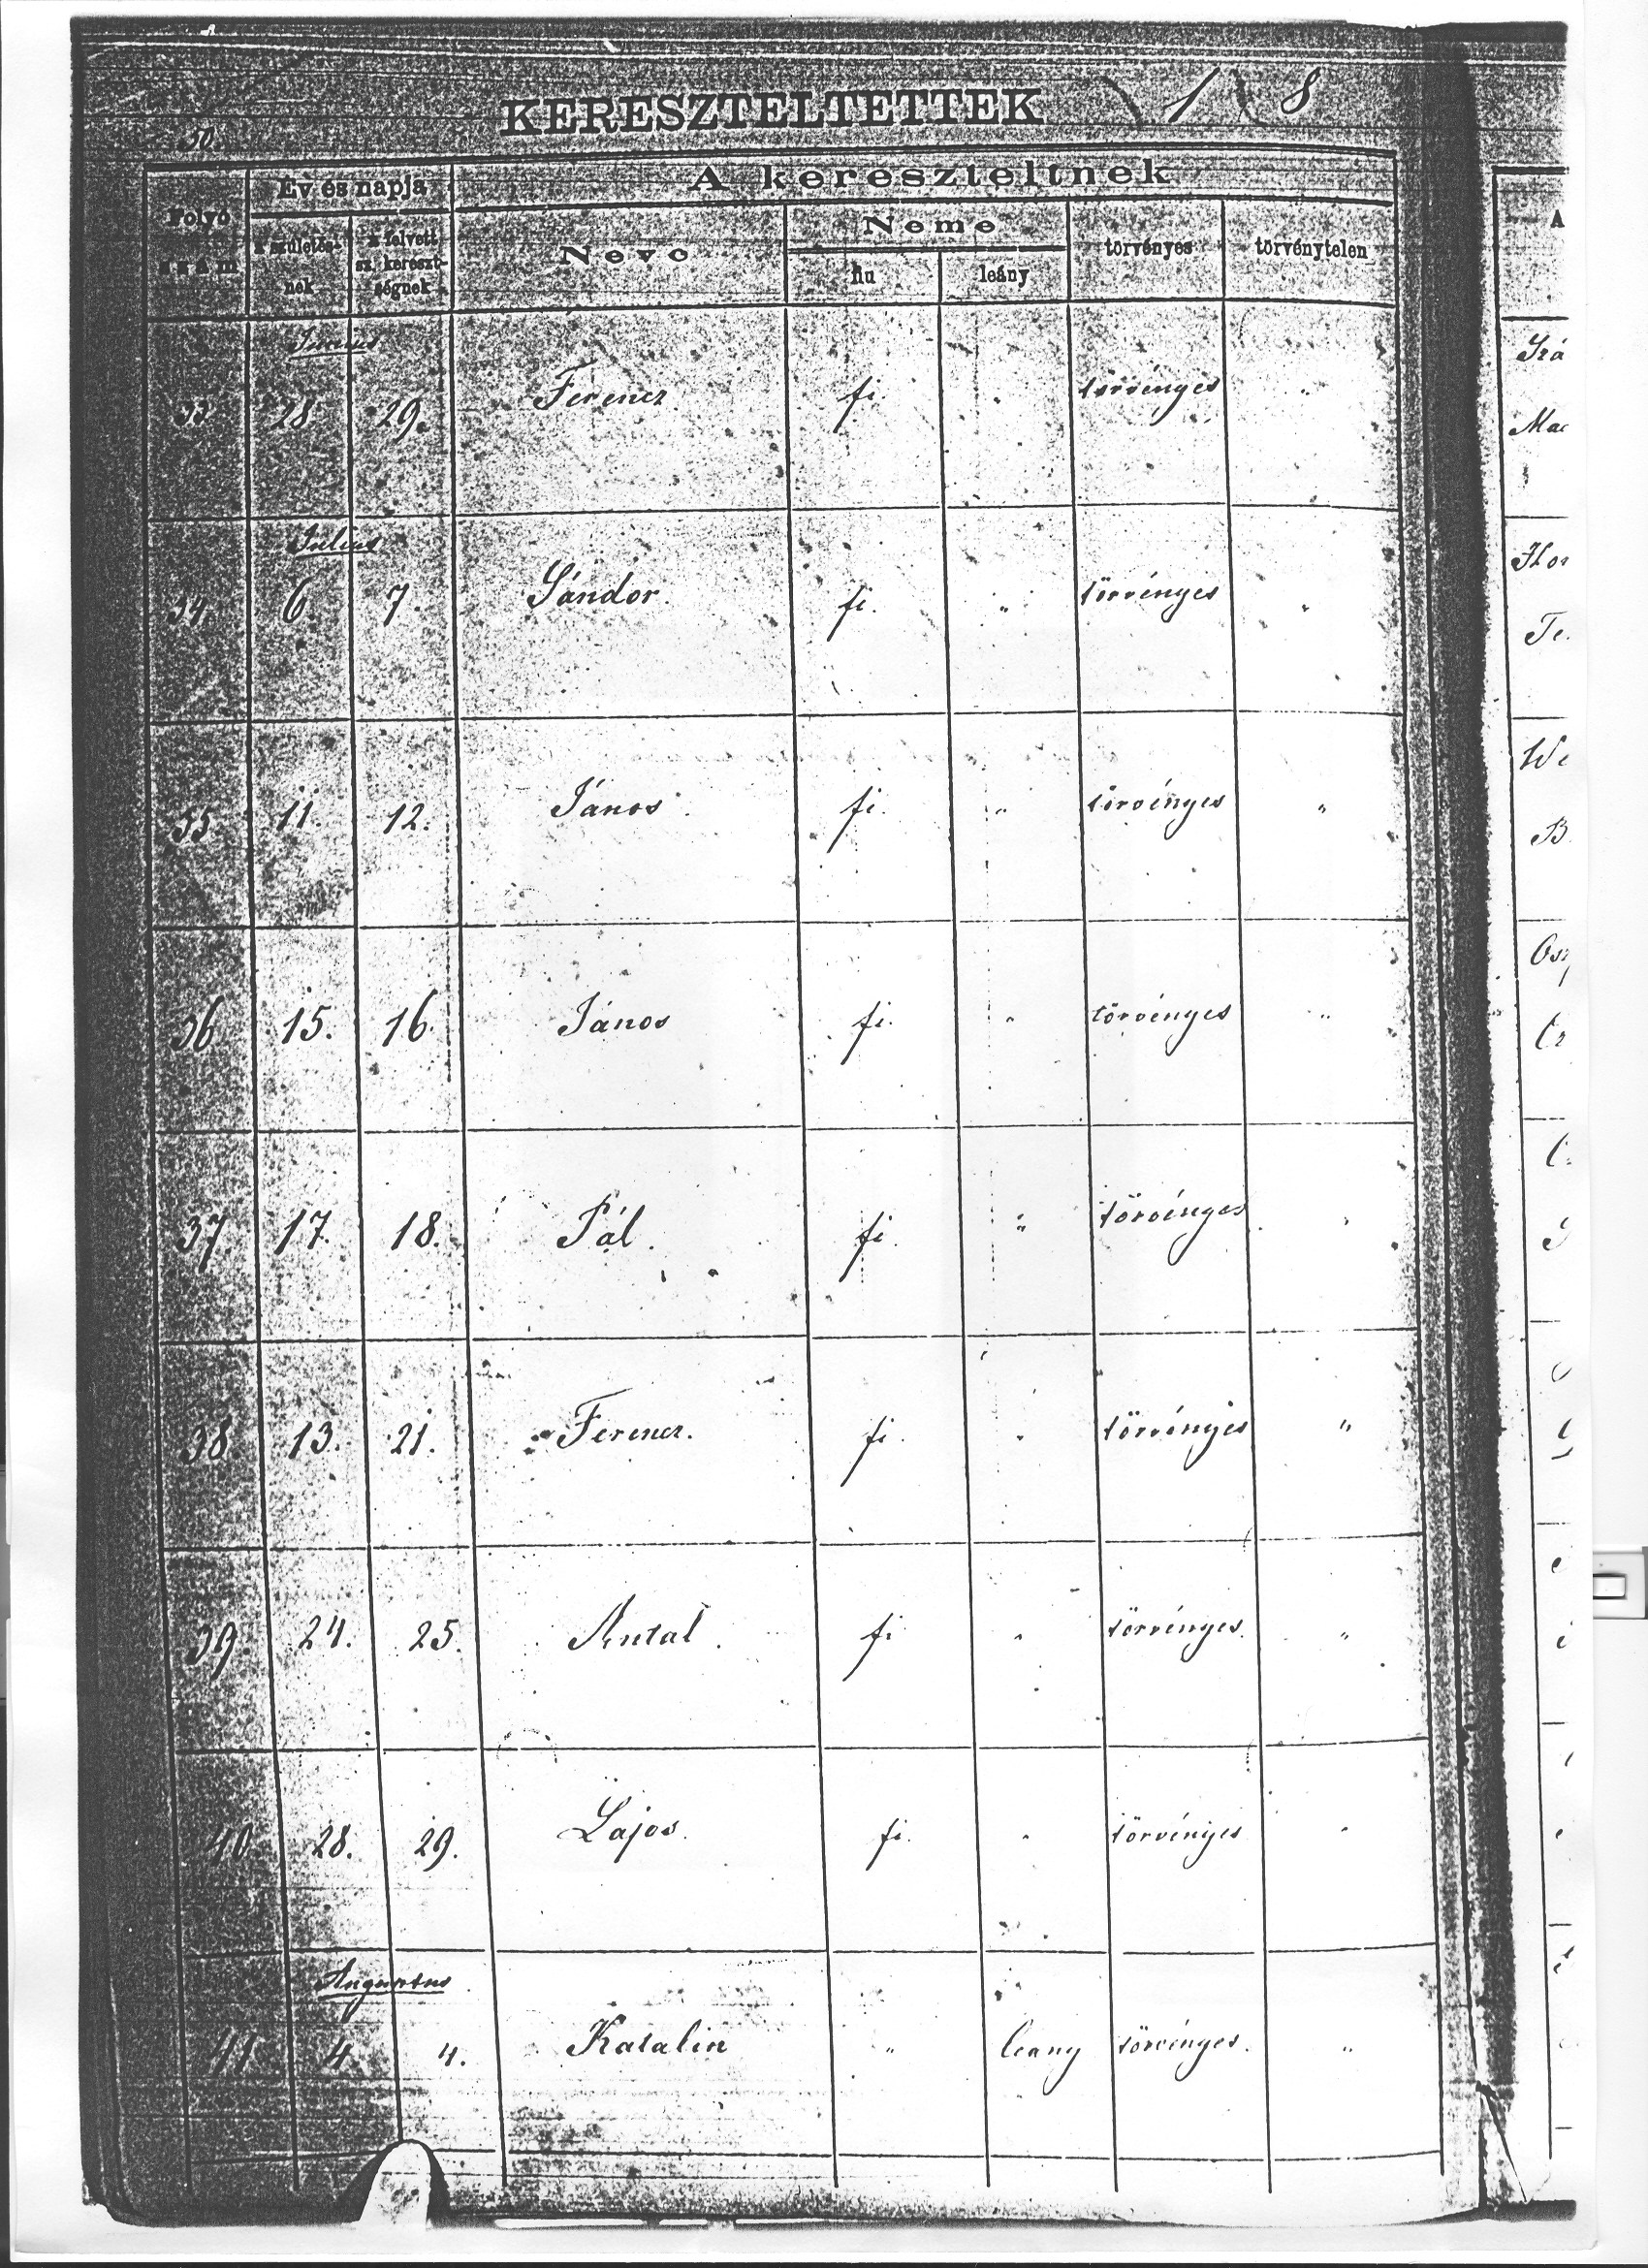 50.
KERESZTELTETTEK 18
Folyó szám
Év és napja
A kereszteltnek
a születés-nek
a felvett sz. kereszt-ségnek
Neve
Neme
fiu
leány
törvényes
törvénytelen
Junius
33. 28 29. Ferencz fi. " törvényes "
Julius
34. 6. 7. Sándor. fi. " törvényes "
35 11. 12. János. fi. " törvényes "
36 15. 16. János fi. " törvényes "
37 17. 18. Pál. fi. " törvényes "
38 13. 21. Ferencz. fi. " törvényes "
39 24. 25. Antal. fi " törvényes. "
40 28. 29. Lajos. fi. " törvényes "
Augustus
41 4 4. Katalin " leany törvényes. "
A